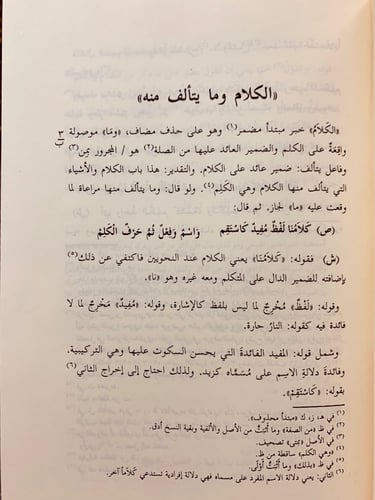 «الكلام وما يتألف منه»
«الكَلاَمُ» خبر مبتدأ مضمر(١) وهو على حذف مضاف، «ومَا» موصولة
٣
ب
واقِعَةٌ على الكلم والضمير العائد عليها من الصلة(٢) هو / المجرور بمن(٣)
وفاعل يتألف: ضمير عائد على الكلام. والتقدير: هذا باب الكلام والأشياء
التي يتألف منها الكلام وهي الكَلِم(٤). ولو قال: وما يتألف منها مراعاة لما
وقعت عليه «ما» لجاز. ثم قال:
(ص) كَلَامُنَا لَفْظٌ مُفِيدٌ كَاسْتَقِم وَاسْمٌ وَفِعْلٌ ثُمَّ حَرْفٌ الْكَلِمْ
(ش) فقوله: «كَلَامُنَا» يعني الكلام عند النحويين فاكتفي عن ذلك(٥)
بإضافته للضمير الدال على المتكلم ومعه غيره وهو «نا».
وقوله: «لَفْظٌ» مُخْرِجٌ لما ليس بلفظ كالإشارة، وقوله: «مُفِيدٌ» مَخْرِجٌ لما لا
فائدة فيه كقوله: النارُ حارة.
وشمل قوله: المفيد الفائدةَ التي يحسن السكوت عليها وهي التركيبية.
وفائدةَ دلالةِ الاسِمِ على مُسَمَّاه كزيد. ولذلك احتاج إلى إخراج الثاني(٦)
بقوله: «كَاسْتَقِمْ».
(١) في هـ، ز، ك «مبتدأ محذوف».
(٢) في ظ «من الصفة» وما أثبتُّ من الأصل والألفية وبقية النسخ أدق.
(٣) في الأصل «بمنى» تصحيف.
(٤) «وهي الكلم» ساقطة من ظ.
(٥) في ظ «بذلك» وما أثبتُّ أَوْلَى.
(٦) الثاني: يعني دلالة الاسم المفرد على مسماه فهي دلالة إفرادية تستدعي كلاماً آخر.